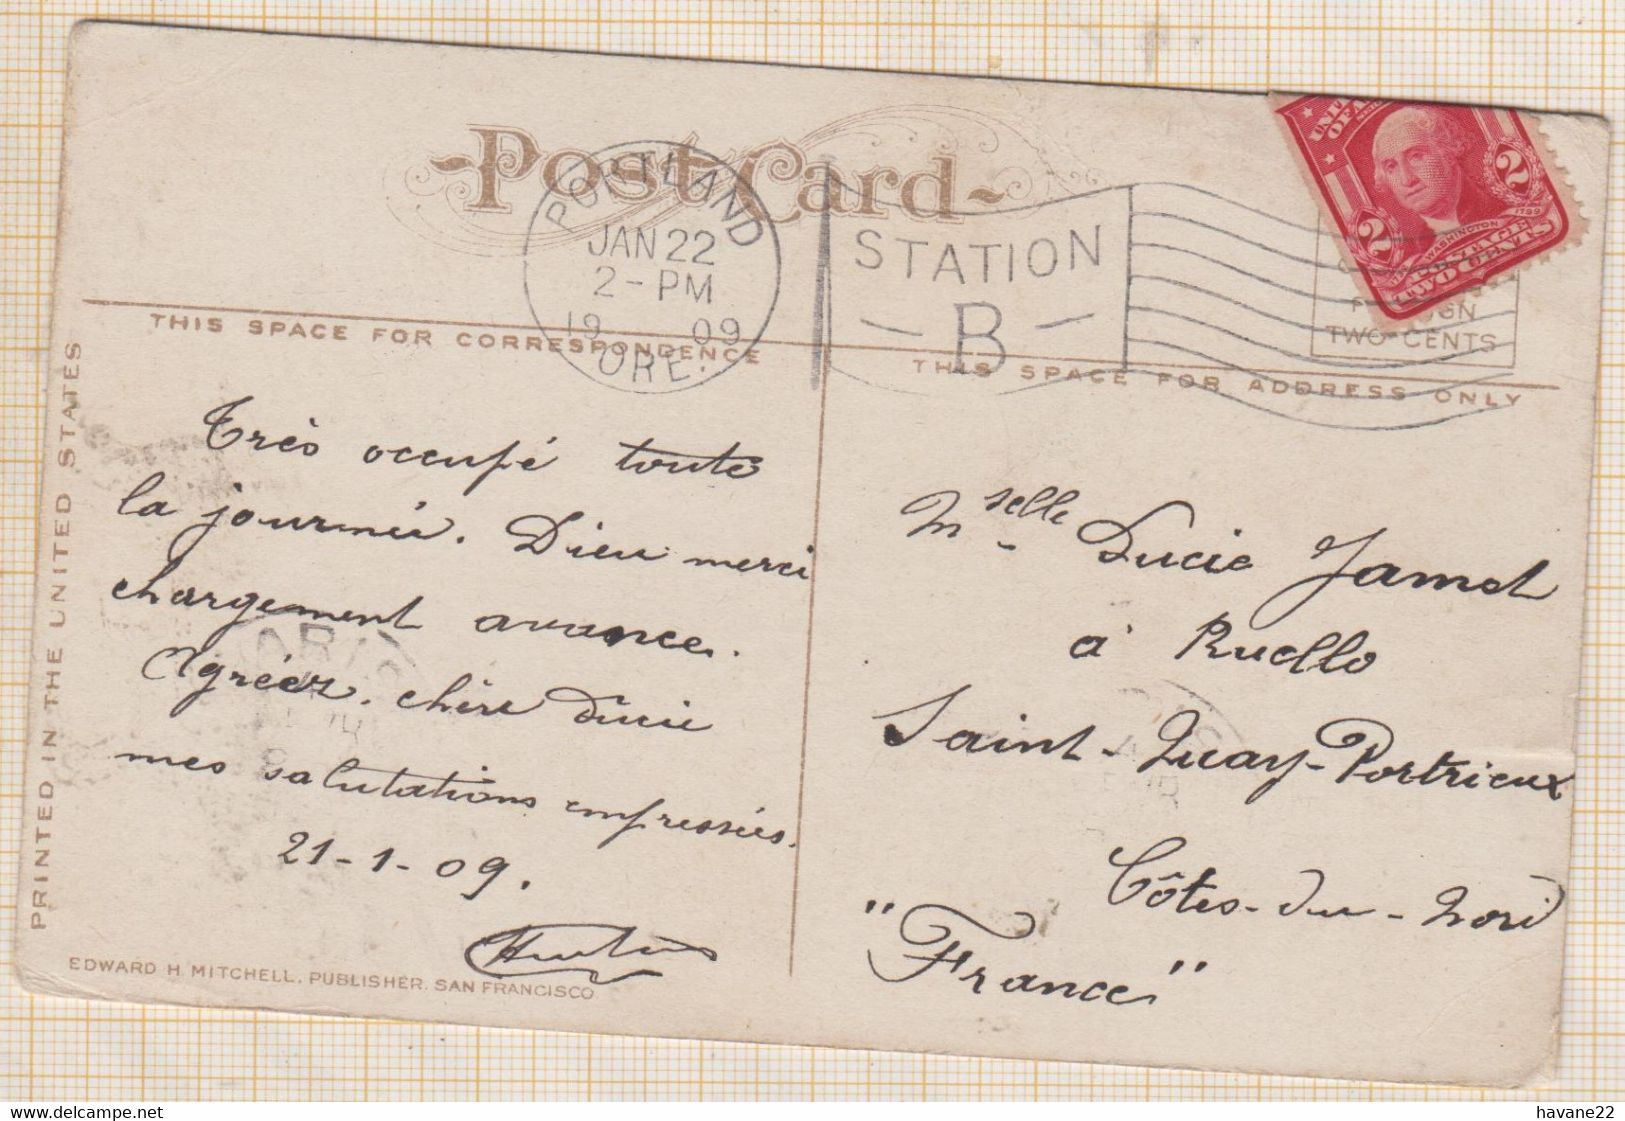 Post Card
PORTLAND
JAN 22
2-PM
19 09
ORE.
STATION
B
WASHINGTON
1799
2 2
TWO CENTS
TWO CENTS
THIS SPACE FOR CORRESPONDENCE
THIS SPACE FOR ADDRESS ONLY
PRINTED IN THE UNITED STATES
Très occupé toute
la journée. Dieu merci
chargement avance.
Agréez. chère Lucie
mes salutations empressées.
21-1-09.
EDWARD H. MITCHELL, PUBLISHER, SAN FRANCISCO
Mselle Lucie Jamet
à Ruello
Saint-Quay-Portrieux
Côtes-du-Nord
"France"
PARIS
havane22